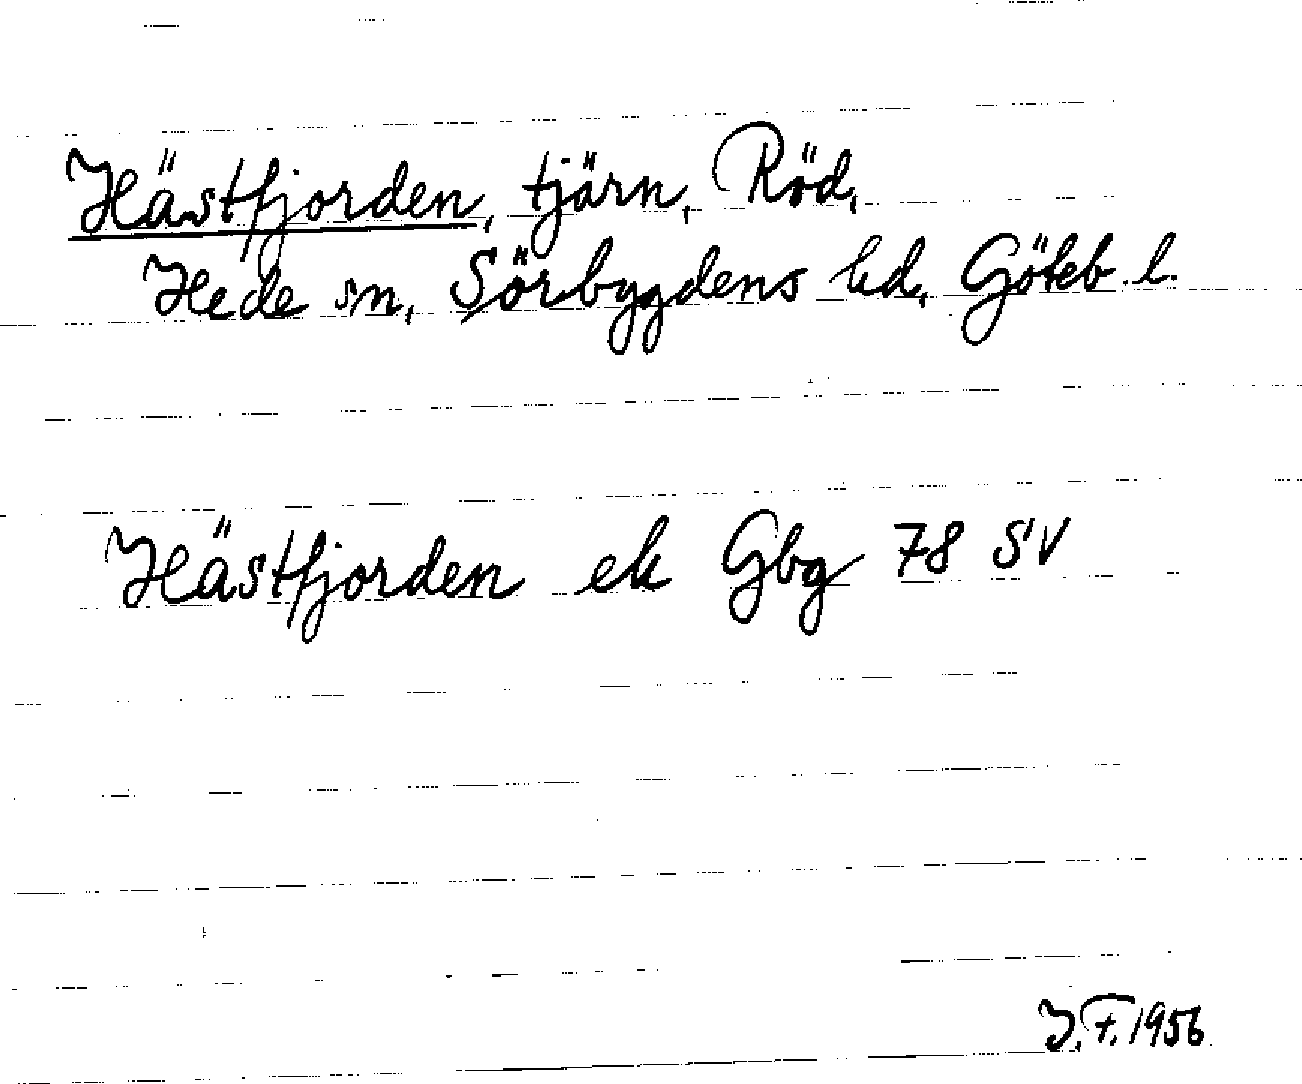 Hästfjorden, tjärn, Röd,
Hede sn, Sörbygdens hd, Göteb. l.
Hästfjorden ek Gbg 78 SV
J.F. 1956